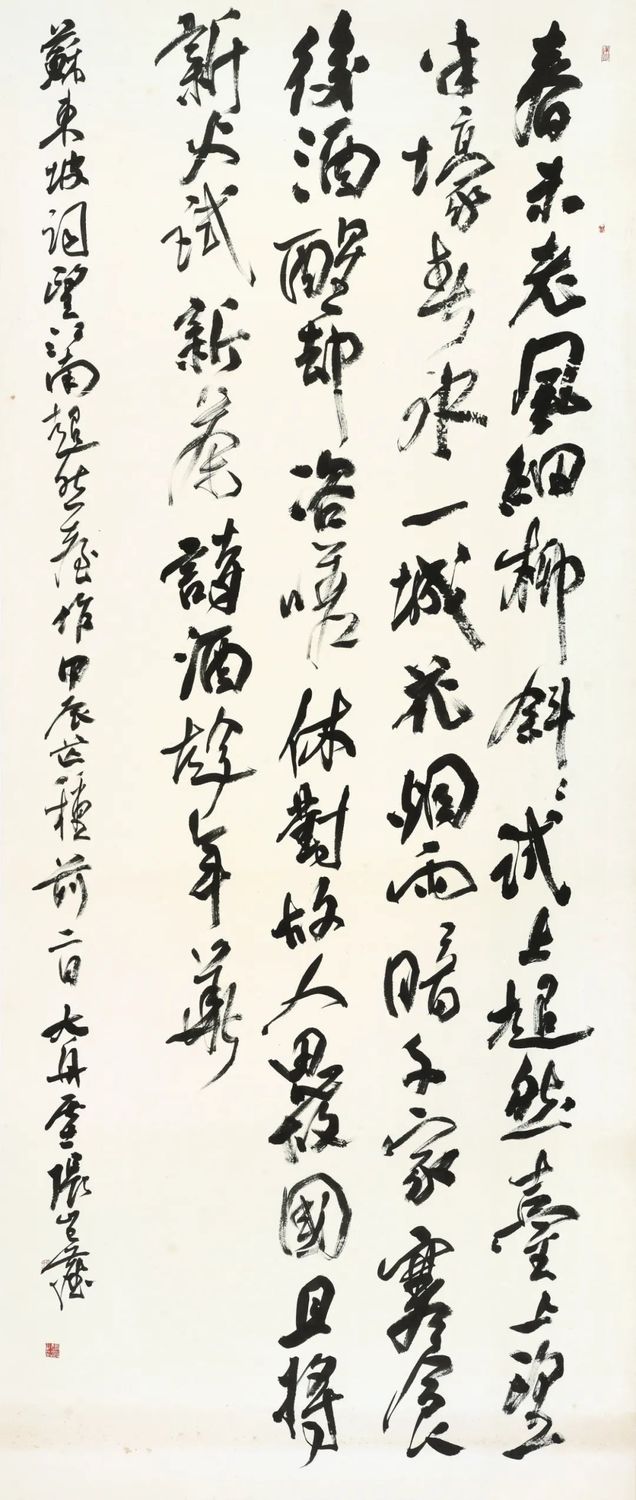 春未老風細柳斜〻試上超然臺上望
半壕春水一城花烟雨暗千家寒食
後酒醒却咨嗟休對故人思故國且將
新火試新茶詩酒趁年華
蘇東坡詞望江南超然臺作甲辰芒種前二日